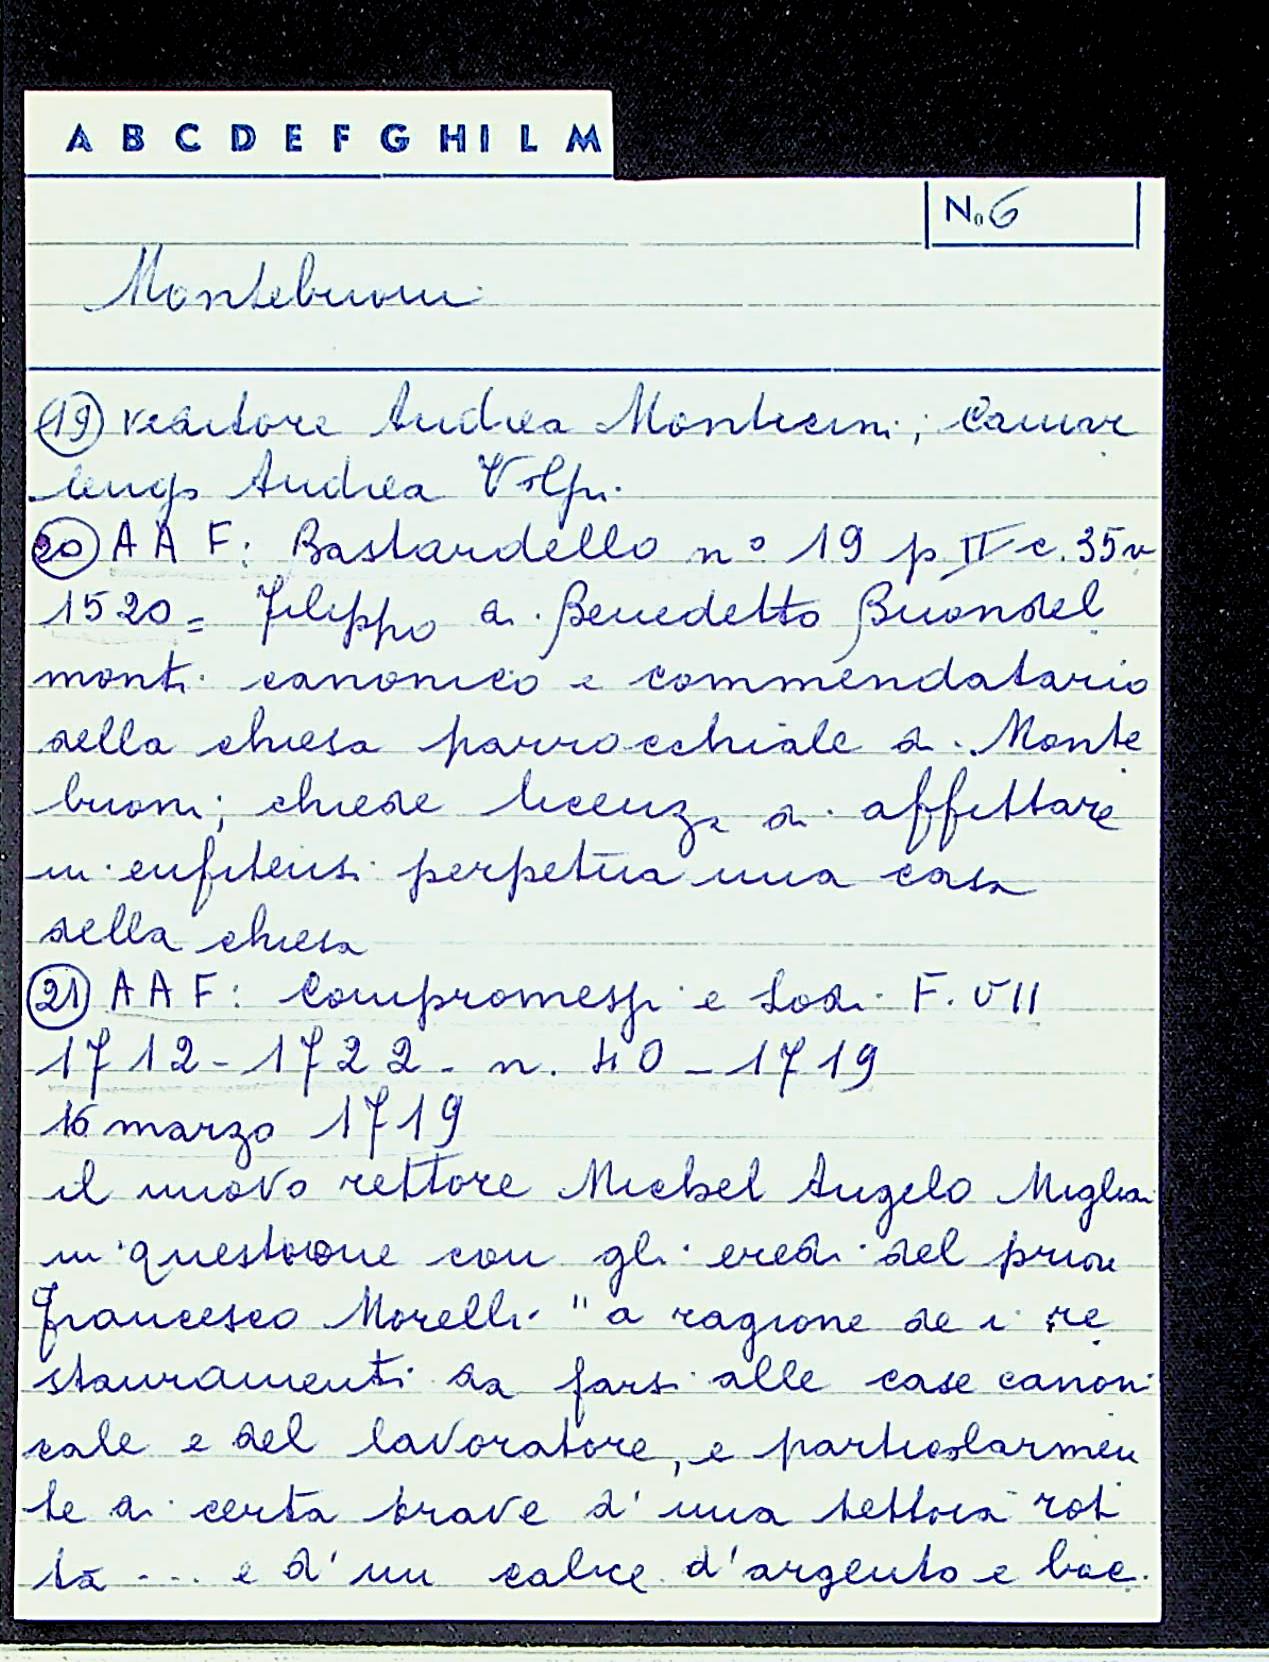 A B C D E F G H I L M
No 6
Montebuoni
(19) Andrea Monticini; Camar
lengo Andrea Volpi.
(20) A A F: Bastardello n° 19 p II c. 35v
1520 = Filippo di Benedetto Buondel
monti canonico e commendatario
della chiesa parrocchiale di Monte
buoni; chiede licenza di affittare
in enfiteusi perpetua una casa
della chiesa
(21) A A F: Compromessi e Lodi F. VII
1712 - 1722 - n. 40 - 1719
16 marzo 1719
il nuovo rettore Michel Angelo Migliai
in questione con gli eredi del priore
Francesco Morelli "a ragione de i re
stauramenti da farsi alle case canoni
cale e del lavoratore, e particolarmen
te di certa trave d'una tettoia rot
ta ... e d'un calice d'argento e bac